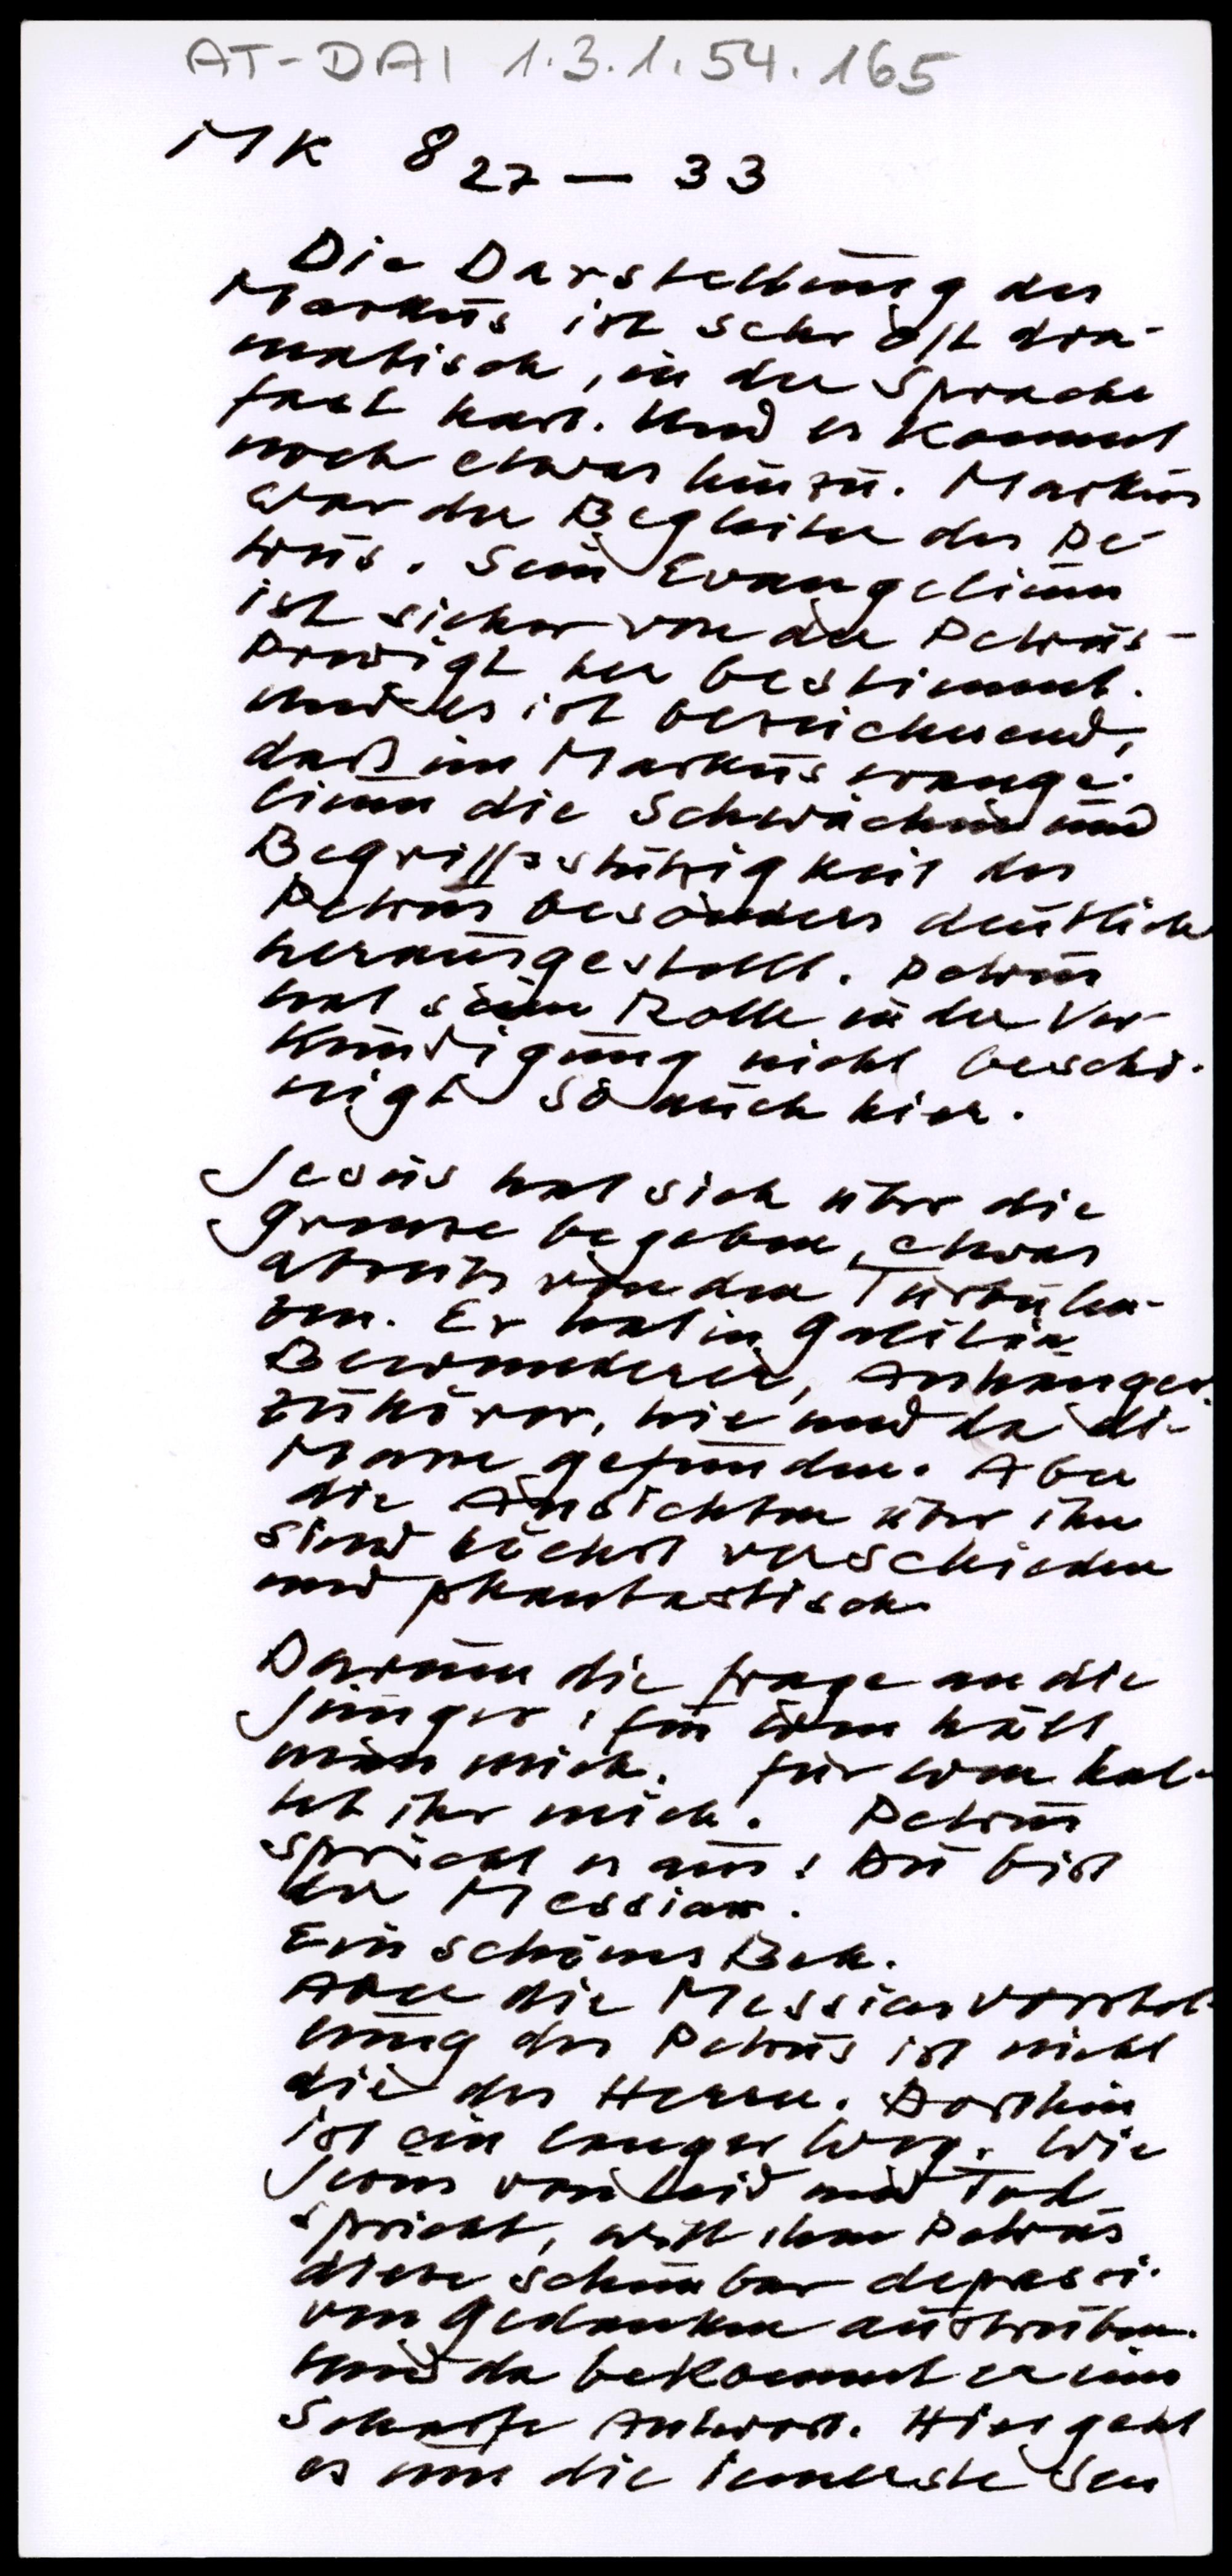 AT-DAI 1.3.1.54.165
MK 8 27 — 33
Die Darstellung des
Markus ist sehr oft dra-
matisch, in der Sprache
fast hart. Und es kommt
noch etwas hinzu. Markus
war der Begleiter des Pe-
trus. Sein Evangelium
ist sicher von der Petrus-
predigt her bestimmt.
Und es ist bezeichnend,
daß im Markusevange-
lium die Schwächen und
Begriffsstützigkeit des
Petrus besonders deutlich
herausgestellt. Petrus
hat seine Rolle in der Ver-
kündigung nicht beschö-
nigt. So auch hier.
Jesus hat sich über die
Grenze begeben, etwas
abseits von den Turbulen-
zen. Er hat in Galiläa
Bewunderer, Anhänger,
Zuhörer, hie und da die
Masse gefunden. Aber
die Ansichten über ihn
sind höchst verschieden
und phantastisch
Darum die Frage an die
Jünger: für wen hält
man mich. Für wen hal-
tet ihr mich. Petrus
spricht es aus: Du bist
der Messias.
Ein schönes Bek.
Aber die Messiasvorstel-
lung des Petrus ist nicht
die des Herrn. Dorthin
ist ein langer Weg. Wie
Jesus von Leid und Tod
spricht, will ihm Petrus
diese scheinbar depressi-
ven Gedanken austreiben.
Und da bekommt er eine
scharfe Antwort. Hier geht
es um die innerste Sen